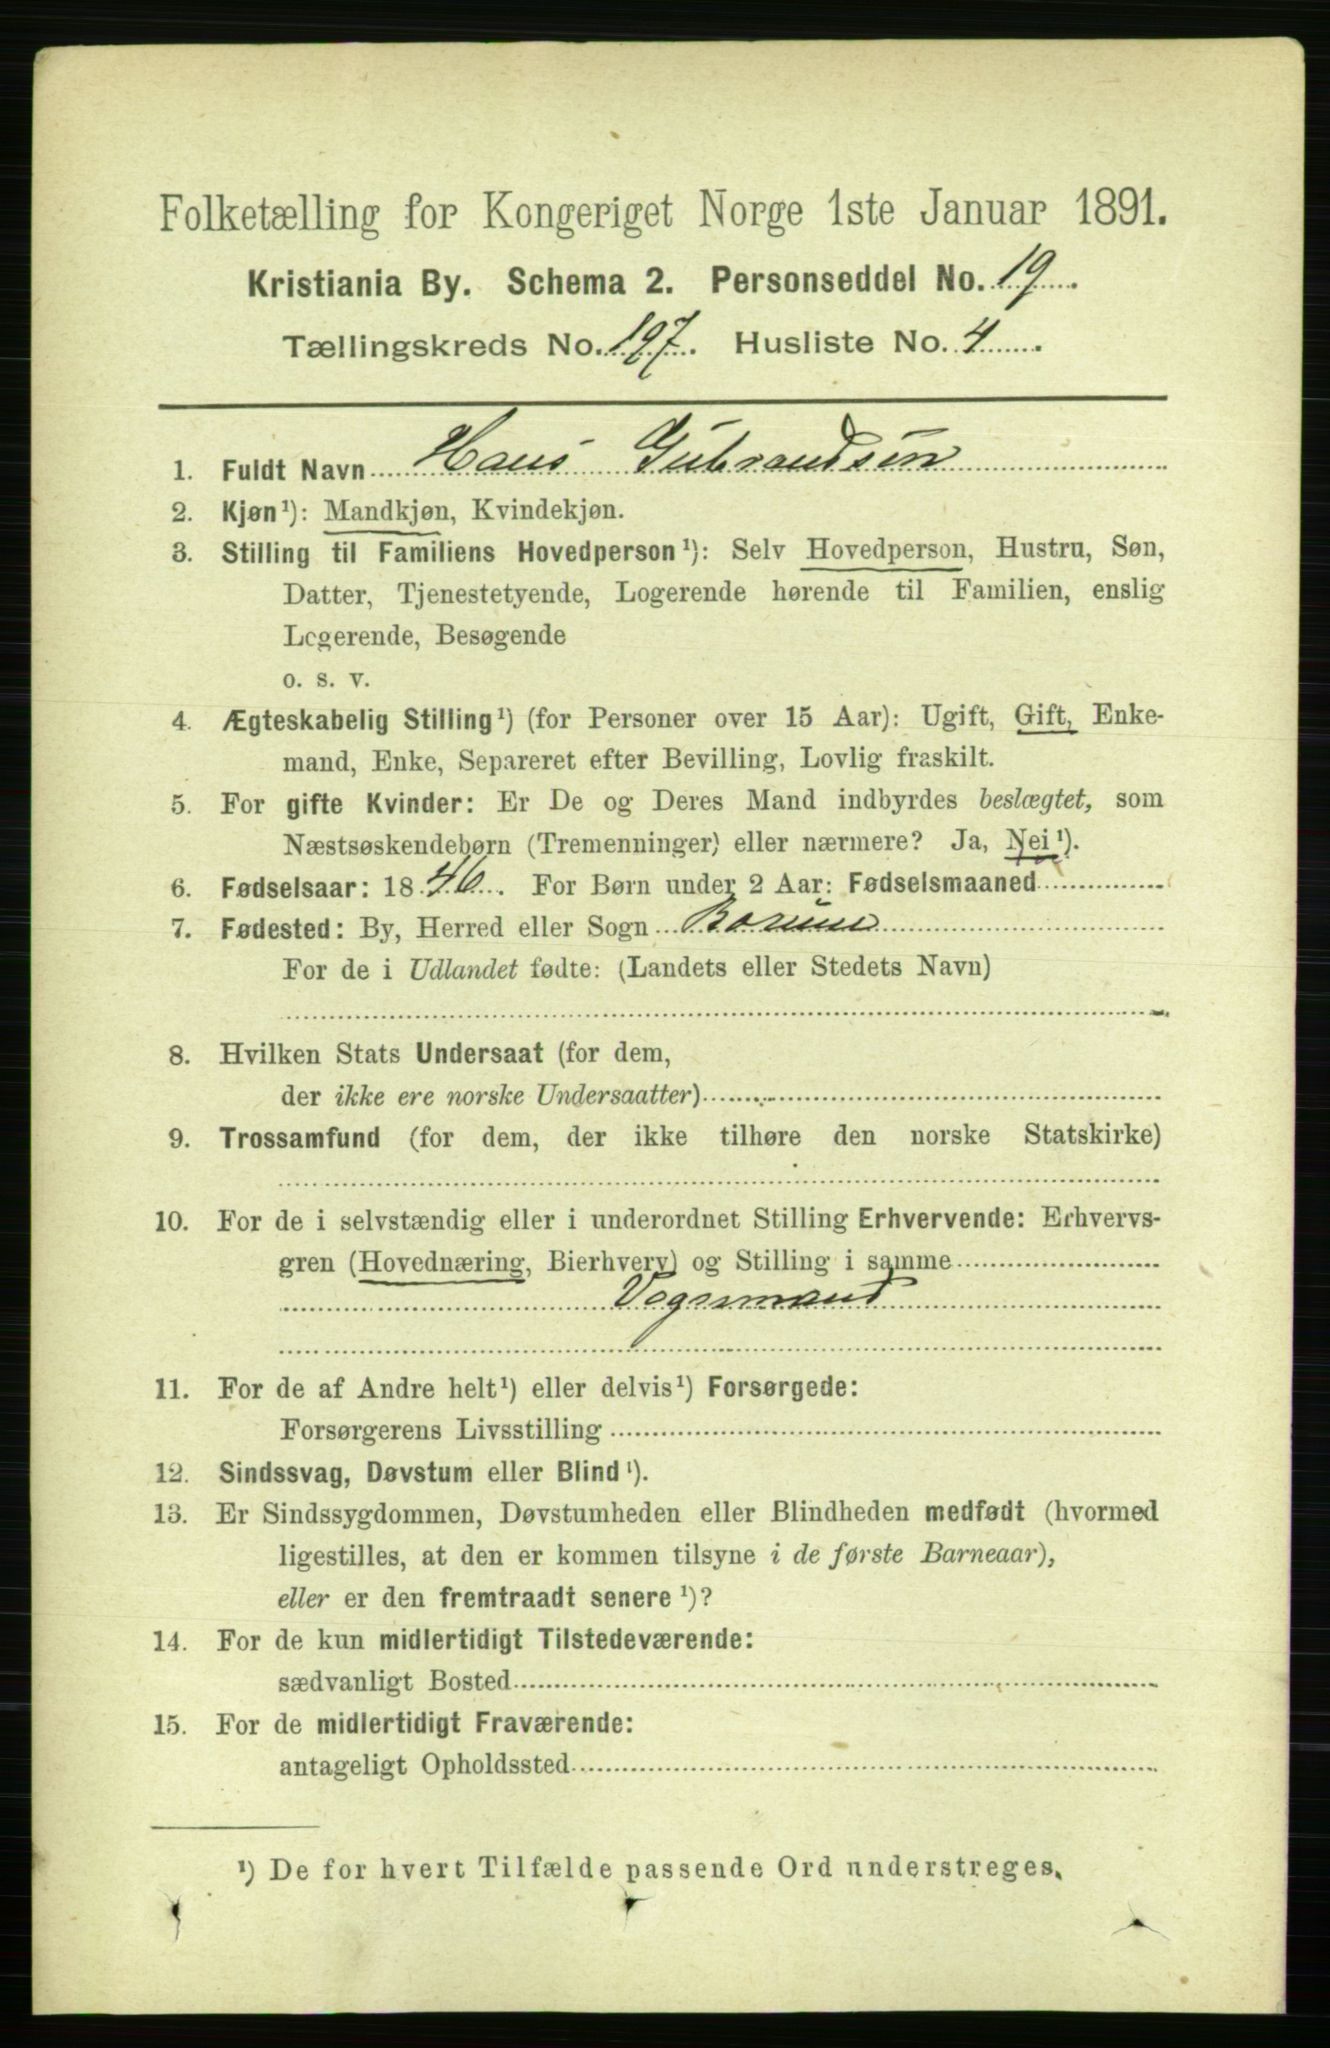 Folketælling for Kongeriget Norge 1ste Januar 1891.
Kristiania By. Schema 2. Personseddel No. 19
Tællingskreds No. 197. Husliste No. 4
1. Fuldt Navn Hans Gubrandsen
2. Kjøn¹): Mandkjøn, Kvindekjøn.
3. Stilling til Familiens Hovedperson¹): Selv Hovedperson, Hustru, Søn,
Datter, Tjenestetyende, Logerende hørende til Familien, enslig
Logerende, Besøgende
o. s. v.
4. Ægteskabelig Stilling¹) (for Personer over 15 Aar): Ugift, Gift, Enke-
mand, Enke, Separeret efter Bevilling, Lovlig fraskilt.
5. For gifte Kvinder: Er De og Deres Mand indbyrdes beslægtet, som
Næstsøskendebørn (Tremenninger) eller nærmere? Ja, Nei¹).
6. Fødselsaar: 1846. For Børn under 2 Aar: Fødselsmaaned
7. Fødested: By, Herred eller Sogn Borum
For de i Udlandet fødte: (Landets eller Stedets Navn)
8. Hvilken Stats Undersaat (for dem,
der ikke ere norske Undersaatter)
9. Trossamfund (for dem, der ikke tilhøre den norske Statskirke)
10. For de i selvstændig eller i underordnet Stilling Erhvervende: Erhvervs-
gren (Hovednæring, Bierhverv) og Stilling i samme
Vognmand
11. For de af Andre helt¹) eller delvis¹) Forsørgede:
Forsørgerens Livsstilling
12. Sindssvag, Døvstum eller Blind¹).
13. Er Sindssygdommen, Døvstumheden eller Blindheden medfødt (hvormed
ligestilles, at den er kommen tilsyne i de første Barneaar),
eller er den fremtraadt senere¹)?
14. For de kun midlertidigt Tilstedeværende:
sædvanligt Bosted
15. For de midlertidigt Fraværende:
antageligt Opholdssted
¹) De for hvert Tilfælde passende Ord understreges.